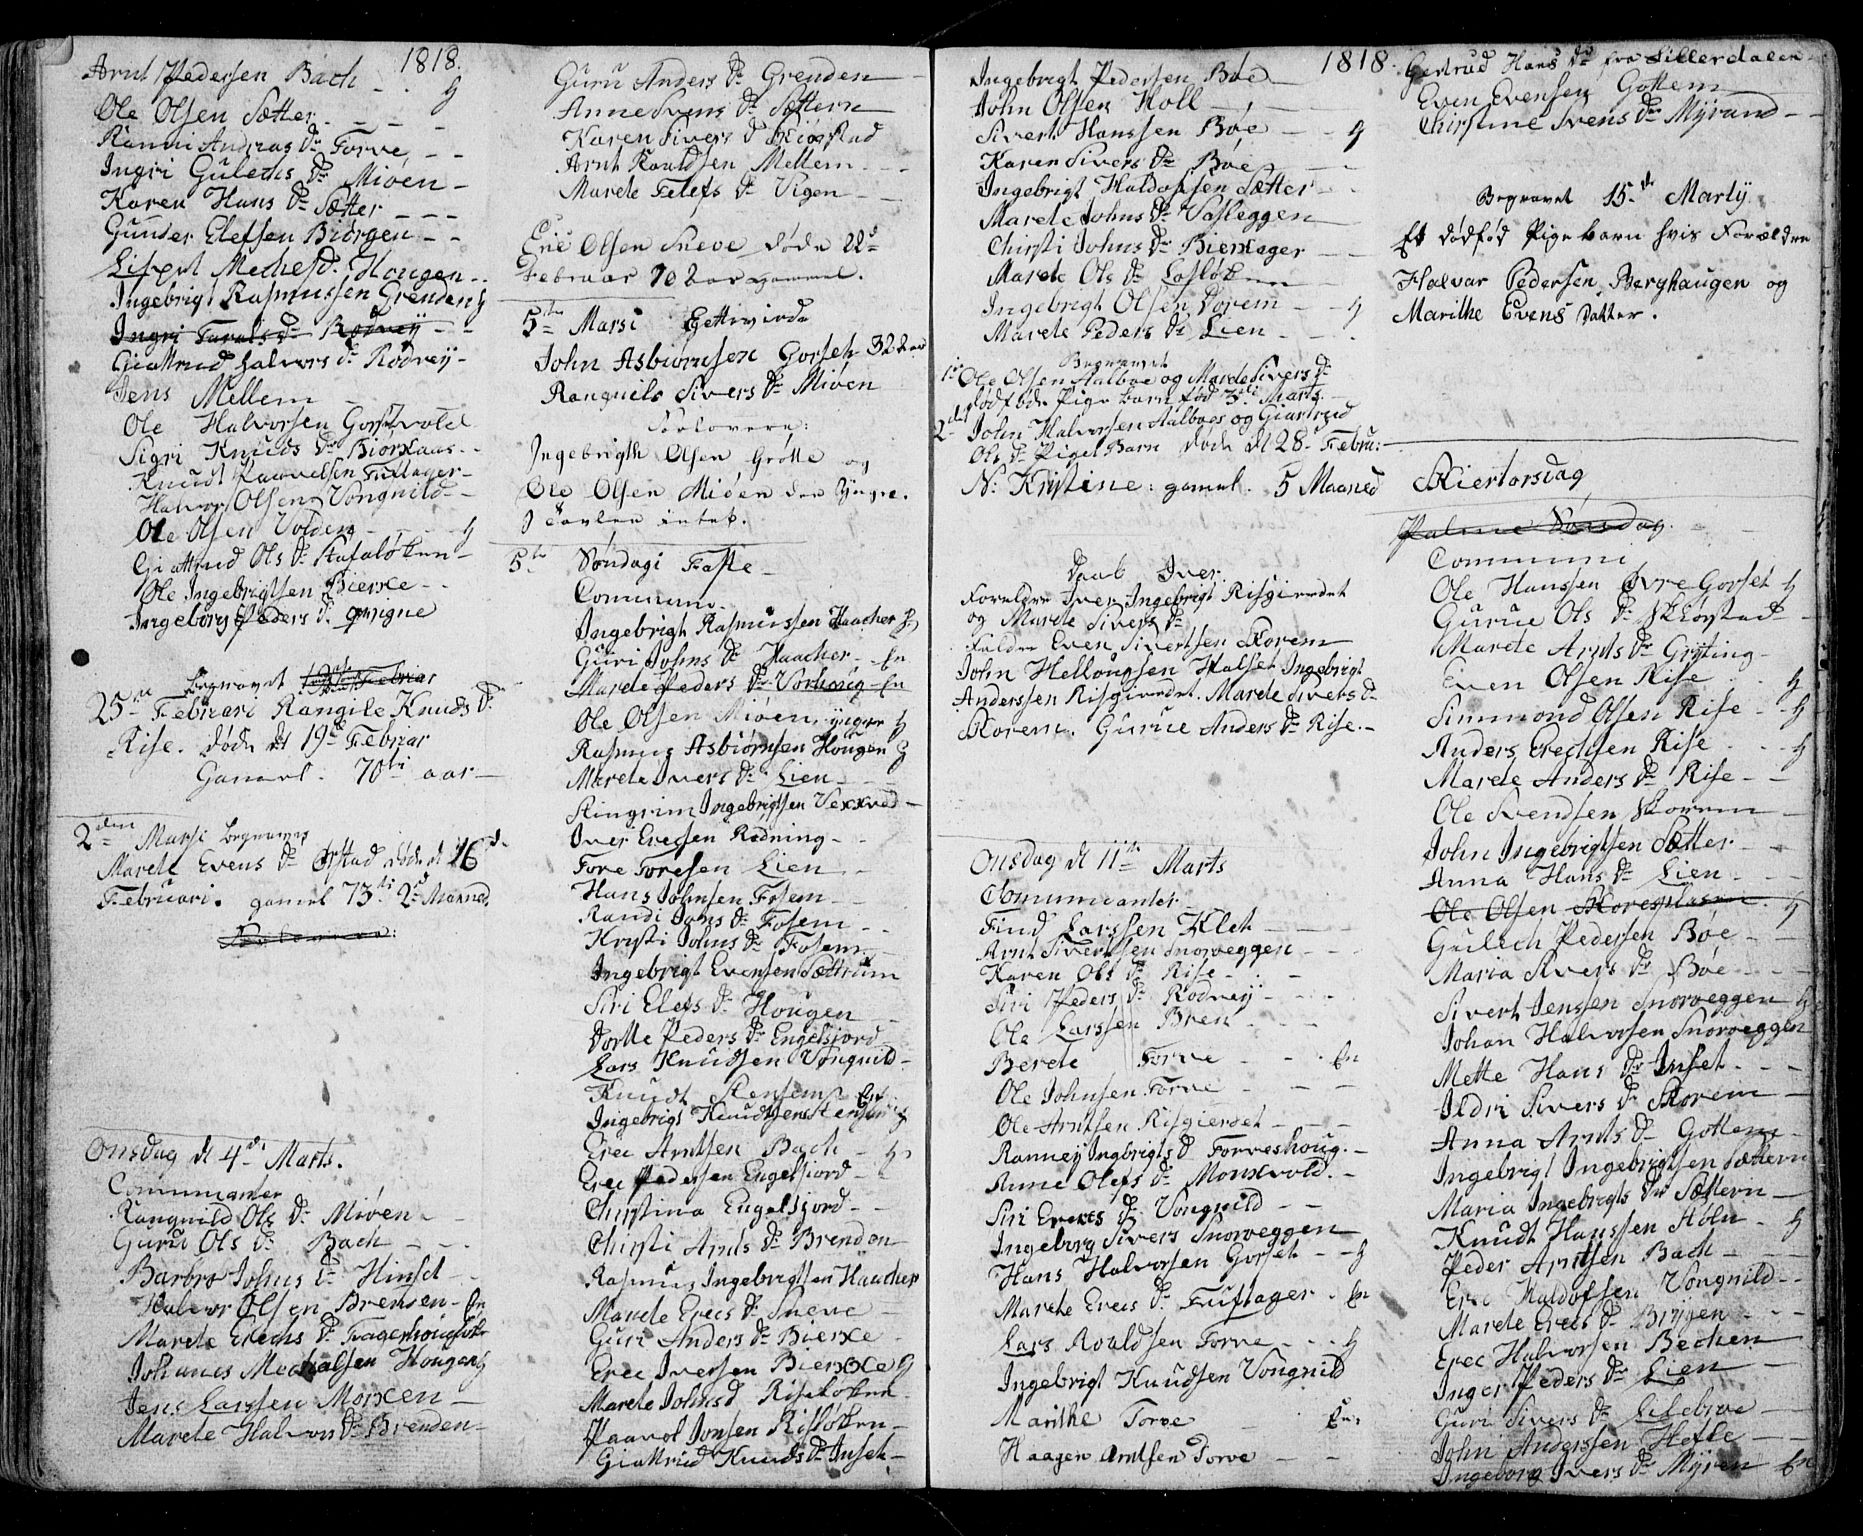 1818.
Arnt Pedersen Bach - - 
Ole Olsen Sætter - - -
Randi Andras Dr Torve - -
Ingri Gulechs Dr Miøen -
Karen Hans Dr Sætter - - -
Gunder Elefsen Biørgen - -
Lisbet Mechels D. Hougen - -
Ingebrigt Rasmussen Grenden
Ingri Taralds Dr Rodvey - -
Giattrud Halvors Dr Rodvey -
Jens Mellem
Ole Halvorsen Gorsetvold
Sigri Knuds Dr Biørkaas - -
Knudt Paavelsen Fustager -
Halvor Olsen Vongnild -
Ole Olsen Volden - - -
Giattrud Ols Dr Stafaløkken -
Ole Ingebrigtsen Bierke - -
Ingeborg Peders D.
Begravet
25de Februari Rangile Knuds Dr
Rise. døde dt 19de Februar
Gamel. 70ti aar
2den Marsi begraves
Marete Evens Dr Ørstad døde dt 16d
Februari. gamel 73ti 2d Maaned.
Onsdag dt 4de Marts.
Communanter
Rangnild Ols Dr Miøen - -
Guru Ols Dr Bach - - -
Barbro Johns Dr Hinset - -
Halvor Olsen Bremsen - En
Marete Erechs Dr
Johanes Mechalsen Hougen
Jens Larssen Morken -
Marete Halvors Dr Brenden -
Guru Anders Dr Grenden
Anne Svens Dr Sættern
Karen Sivers D Skiørstad
Arnt Roaldsen Mellem - - -
Marete Telefs Dr Vigen - -
Eric Olsen Sneve døde 22d
Februar 70 aar gammel.
5te Marsi Egtevivde
John Asbiørnsen Gorset 32 aar
Rangnild Sivers Dr Miøen
Forlovere:
Ingebrigth Olsen Grøtte og
Ole Olsen Miøen den Yngre.
I Tavlen intet.
5te Søndag i Faste -
Communic.
Ingebrigt Rasmussen Haacher
Guri Johns Dr Haacher - En
Marete Peders Dr Vorhoug - En
Ole Olsen Miøen yngre
Rasmus Asbiørnsen Hougen
Marete Ivers Dr Lien - -
Stingrim Ingebrigtsen Vekkved -
Iver Erecsen Rodning - -
Tore Toresen Lien - -
Hans Johnsen Fosem - -
Randi Jons Dr Fosem - -
Kristi Johns Dr Fosem -
Ingebrigt Evensen Sættrum
Siri Elefs Dr Hougen -
Dortte Peders Dr Engelsjord -
Lars Knudsen Vongnild -
Knudt Stensem En
Ingebrigt Knudtsen Stensem
Erec Arntsen Bach -
Erec Pedersen Engelsjord -
Christina Engelsjord - -
Chirsti Arnts Dr Brendon
Rasmus Ingebrigtsen Haacher
Marete Erecs Dr Sneve -
Guri Anders Dr Bierke -
Erec Iversen Bierke
Marete Johns D Riseløken -
Paavel Jonsen Risløken -
Giattrud Knuds Dr Inset -
1818.
Ingebrigt Pedersen Bøe -
John Olsen Holl - - -
Sivert Hanssen Bøe - -
Karen Sivers Dr Bøe - -
Ingebrigt Haldorsen Sætter - -
Marete Johns Dr Vasleggen -
Chirsti Johns Dr Bierkager - -
Marete Ols Dr
Ingebrigt Olsen Dorem - -
Marete Peders Dr Lien - - -
Begravet
1te Ole Olsen Aalboe og Marete Sivers Dr
dødfødte Pige barn fød 3de Marts.
2det John Halvorsen Aalboes og Giartrud
Ols Dr Pige Barn døde dt 28. Febru:
N: Kristine: gamel. 5 Maaned
Døbt Iver.
Foreldre Iver Ingebrigt Risgieredet
og Marete Sivers Dr
Faddere Even Sivertsen Skorem
John Hellougsen Halset Ingebrigt
Anderssen Risgieredet. Marete Sivers Dr
Skorem. Gurue Anders Dr Rise. -
Onsdag dt 11te Marts
Communicanter
Find Larssen Klet - - -
Arnt Sivertsen Snorveggen - -
Karen Ols Dr Rise - - -
Siri Peders Dr Rodvey - - -
Ole Larssen Bren - - -
Berete Torve - - - En
Ole Johnsen Torve - - -
Ole Arntsen Risgieredet - - -
Ranney Ingbrigts D Torveshoug. -
Anne Olefs Dr Monkvold. -
Siri Erecs Dr Vongnild - -
Ingeborg Sivers Snorveggen
Hans Halvorsen Gorset - -
Marete Erecs Dr Fustager. En
Lars Roaldsen Torve - - -
Ingebrigt Knudsen Vongnild
Marithe Torve En:
Haagen Arntsen Torve - -
Gertrud Hans Dr fra Sillerdalen -
Even Evensen Gottem -
Chirstine Svens Dr Myrand - -
Begravet 15de Martij.
Et dødfød Pige barn hvis Forældre
Halvar Pedersen Berghaugen og
Marithe Evens datter.
Skiertorsdag
Palme Sønsdag.
Communic
Ole Hanssen Øvre Gorset
Gurue Ols Dr Skiørstad -
Marete Arnts Dr Gryting -
Even Olsen Rise - -
Simmond Olsen Rise - -
Anders Erechsen Rise - - -
Marete Anders Dr Rise - -
Ole Svendsen Skorem -
John Ingebrigtsen Sætter - -
Anna Hans Dr Lien - - -
Ole Olsen Skoresplassen -
Gulech Pedersen Bøe - -
Maria Sivers Dr Bøe - - -
Sivert Jenssen Snorveggen
Johan Halvorsen Snorveggen
Mette Hans Dr Inset - - -
Ildri Sivers Dr Skorem - -
Anna Arnts Dr Gottem -
Ingebrigt Ingebrigtsen Sættern
Maria Ingebrigts Dr Sættern -
Knudt Hanssen Støln -
Peder Arntsen Bach - -
Erec Haldorsen Vongnild - -
Marete Erecs Dr Bryggen - -
Erec Halvorsen Bechen
Inger Peders Dr Lien -
Guri Sivers Dr Lilebroe -
John Anderssen Hefle - -
Ingeborg Ivers Dr Myren - En